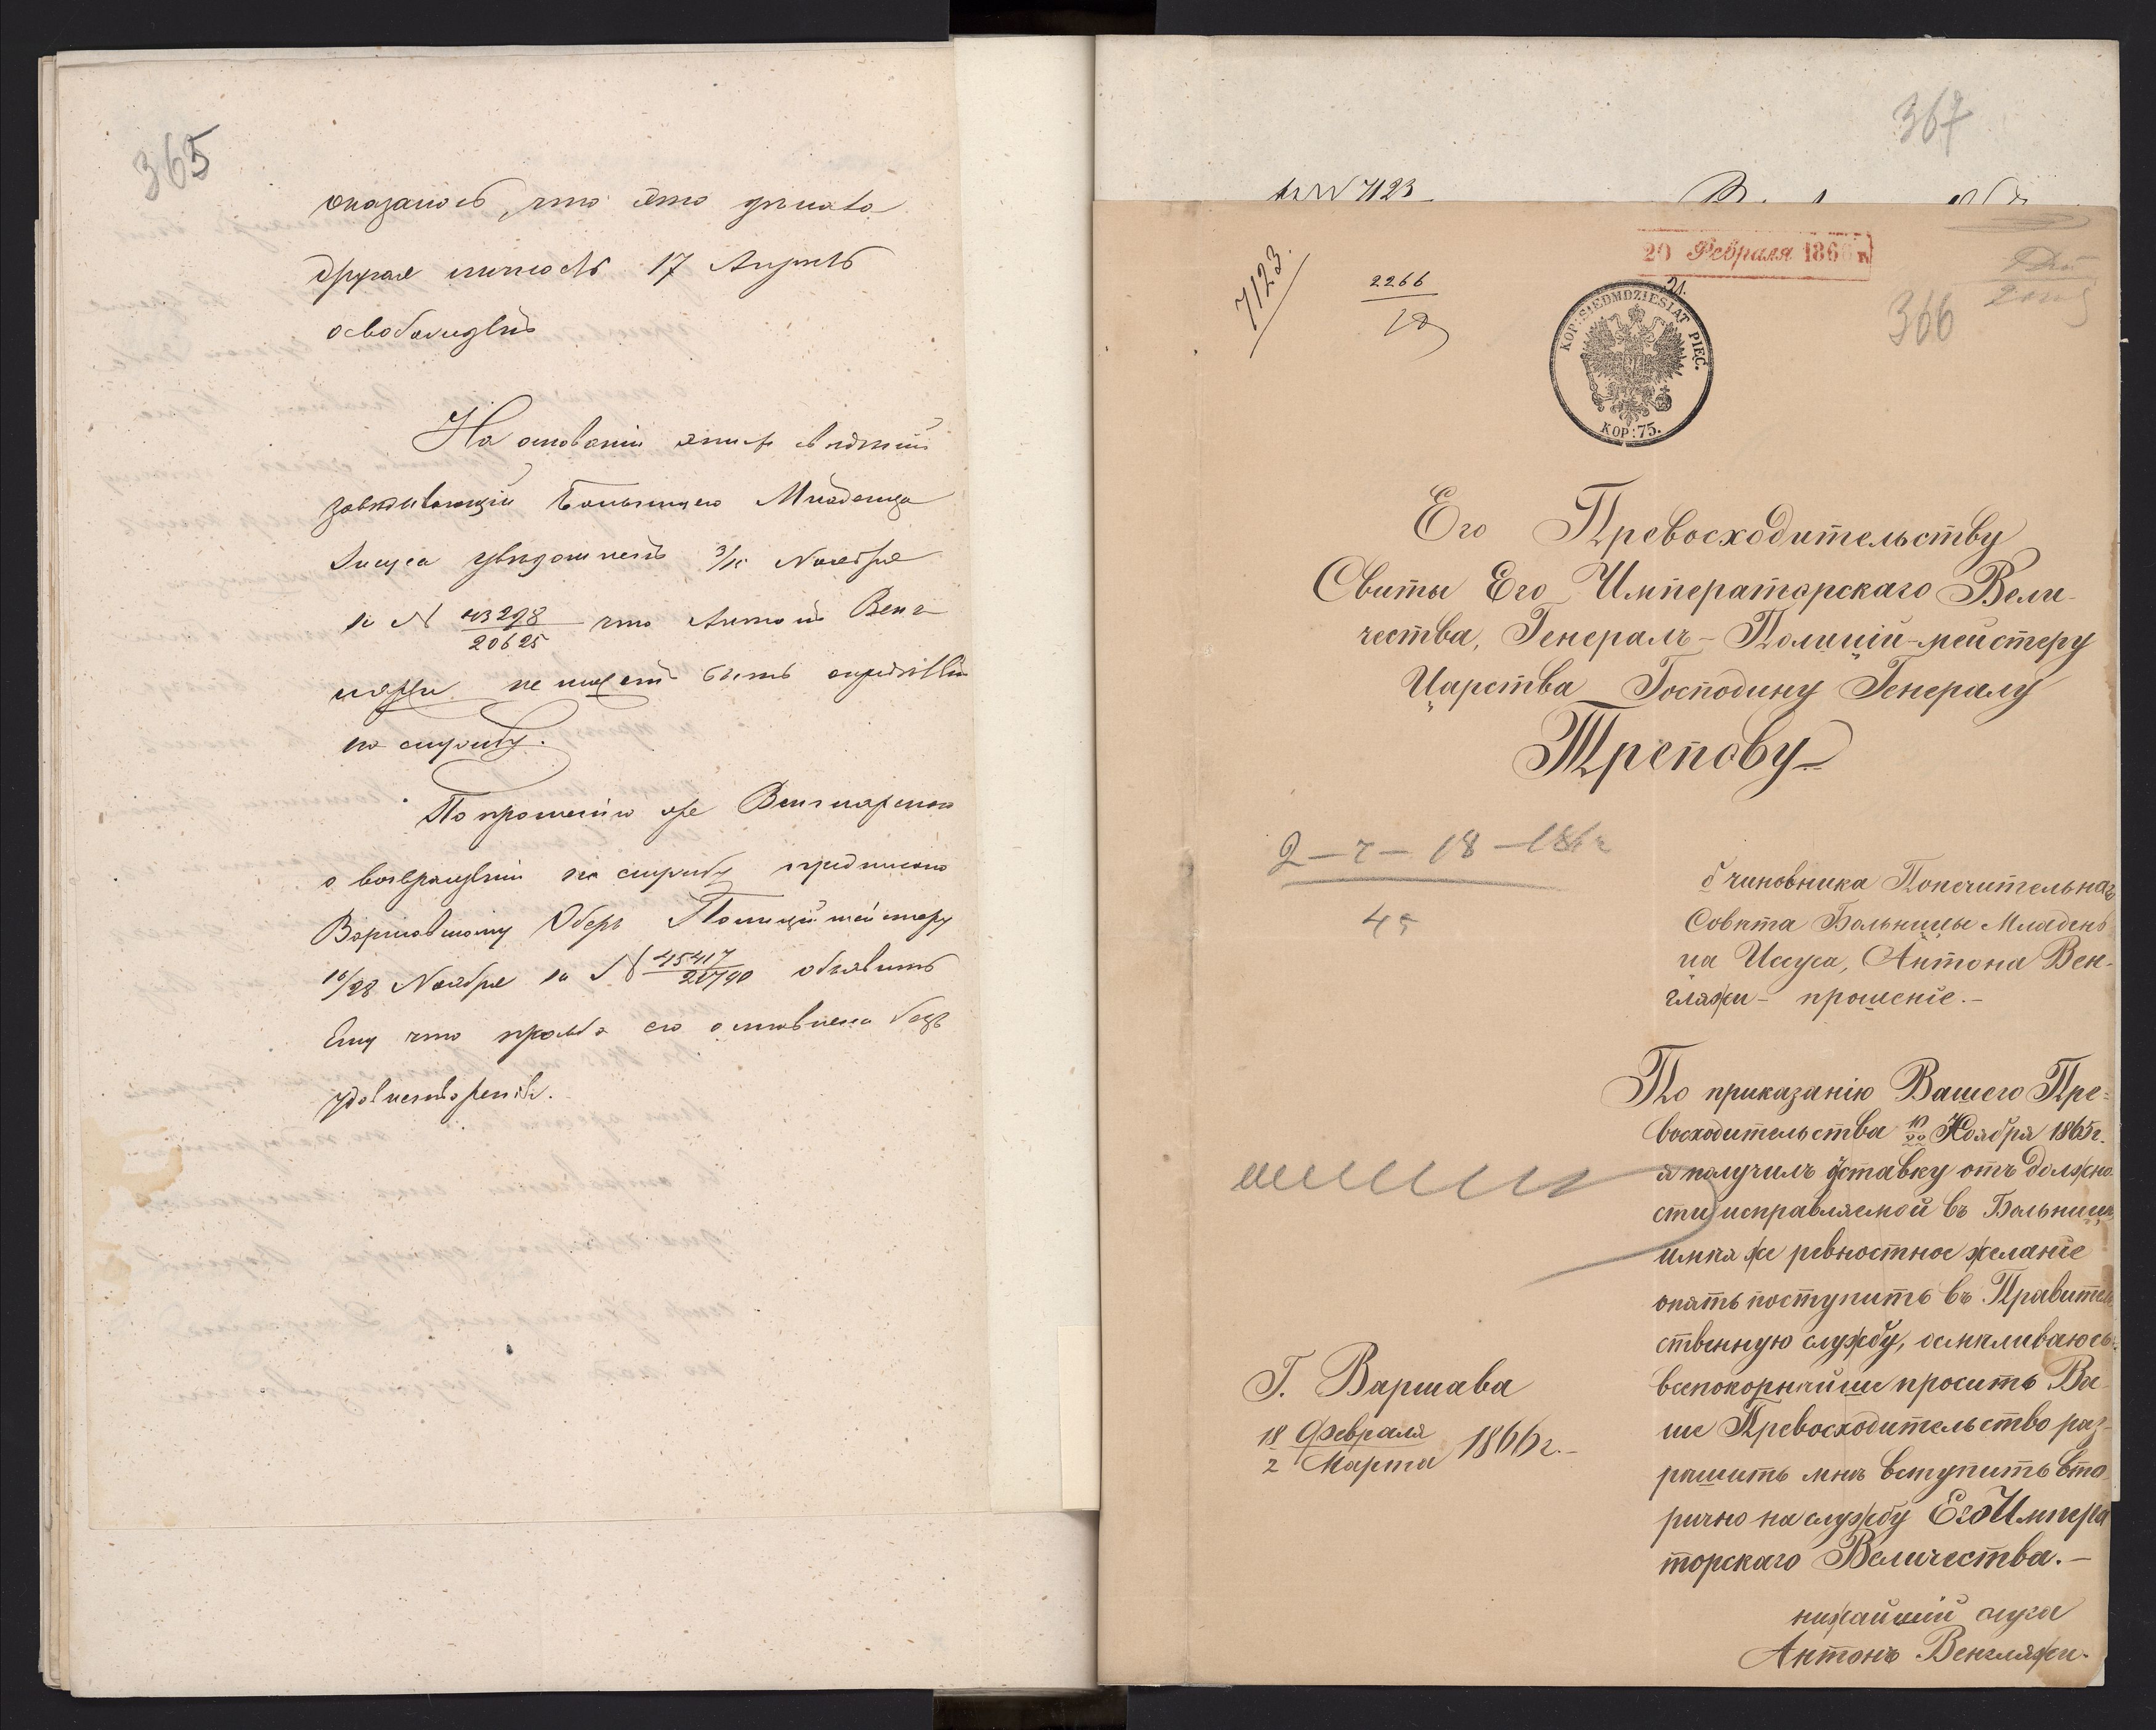 365
оказалось, что это
другая личность 17
На основаніи этихъ свѣдѣній
завѣдывающій Больницею Младенца
Іисуса увѣдомленъ 3/15 Ноября
за N 43298/20625 что Антоній Венг-
ляржи не можетъ быть
на службу.
По прошенію же
о возвращеніи на службу предписано
Варшавскому Оберъ Полиціймейстеру
16/28 Ноября за N 45417/20790 объявить
Ему что просьба его оставлена безъ
удовлетворенія.
367
N 7123
7123.
2266
20 Февраля 1866 г.
21.
KOP: SIEDMDZIESIAT PIĘC.
KOP: 75.
366
Его Превосходительству
Свиты Его Императорскаго Вели-
чества, Генералъ-Полиціймейстеру
Царства Господину Генералу
Трепову
2 - 2 - 18 -
45
б чиновника Попечительнаго
Совѣта Больницы Младен
ца Иссуса, Антона Вен-
гляжи - прошеніе.-
По приказанію Вашего Пре=
восходительства 10/22 Ноября 1865 г.
я получилъ отставку отъ должно
сти исправляемой въ Больницѣ
имѣя же ревностное желаніе
опять поступить въ Правитель
ственную службу, осмѣливаюсь
всепокорнѣйше просить Ва
ше Превосходительство раз-
рѣшить мнѣ вступить вто
рично на службу Его Импера
торскаго Величества.-
нижайшій слуга
Антонъ Венгляжи.
Г. Варшава
18 Февраля/2 Марта 1866 г.-